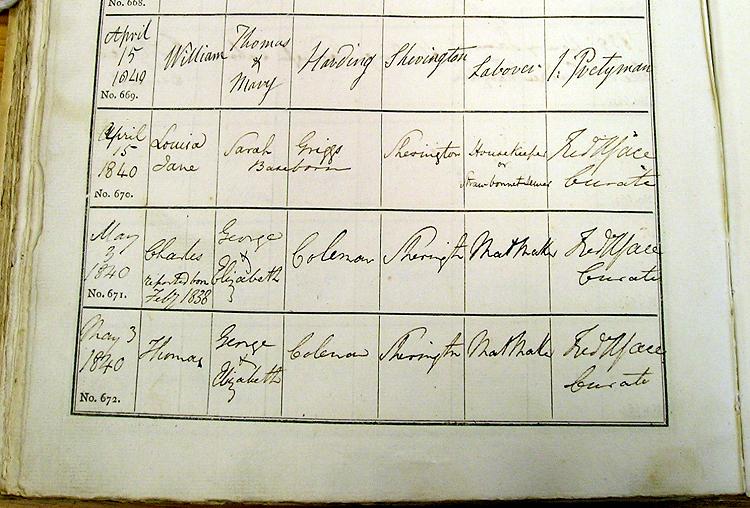 No. 668.
April 15 1840 William Thomas & Mary Harding Shevington Labover J: Pretyman
No. 669.
April 15 1840 Louisa Jane Sarah Griggs Baseborn Sherington Housekeeper or Straw bonnet sewer Curate
No. 670.
May 3 1840 Charles reported born Feby 1838 George & Elizabeth Coleman Sherington Mat Maker Curate
No. 671.
May 3 1840 Thomas George & Elizabeth Coleman Sherington Mat Maker Curate
No. 672.